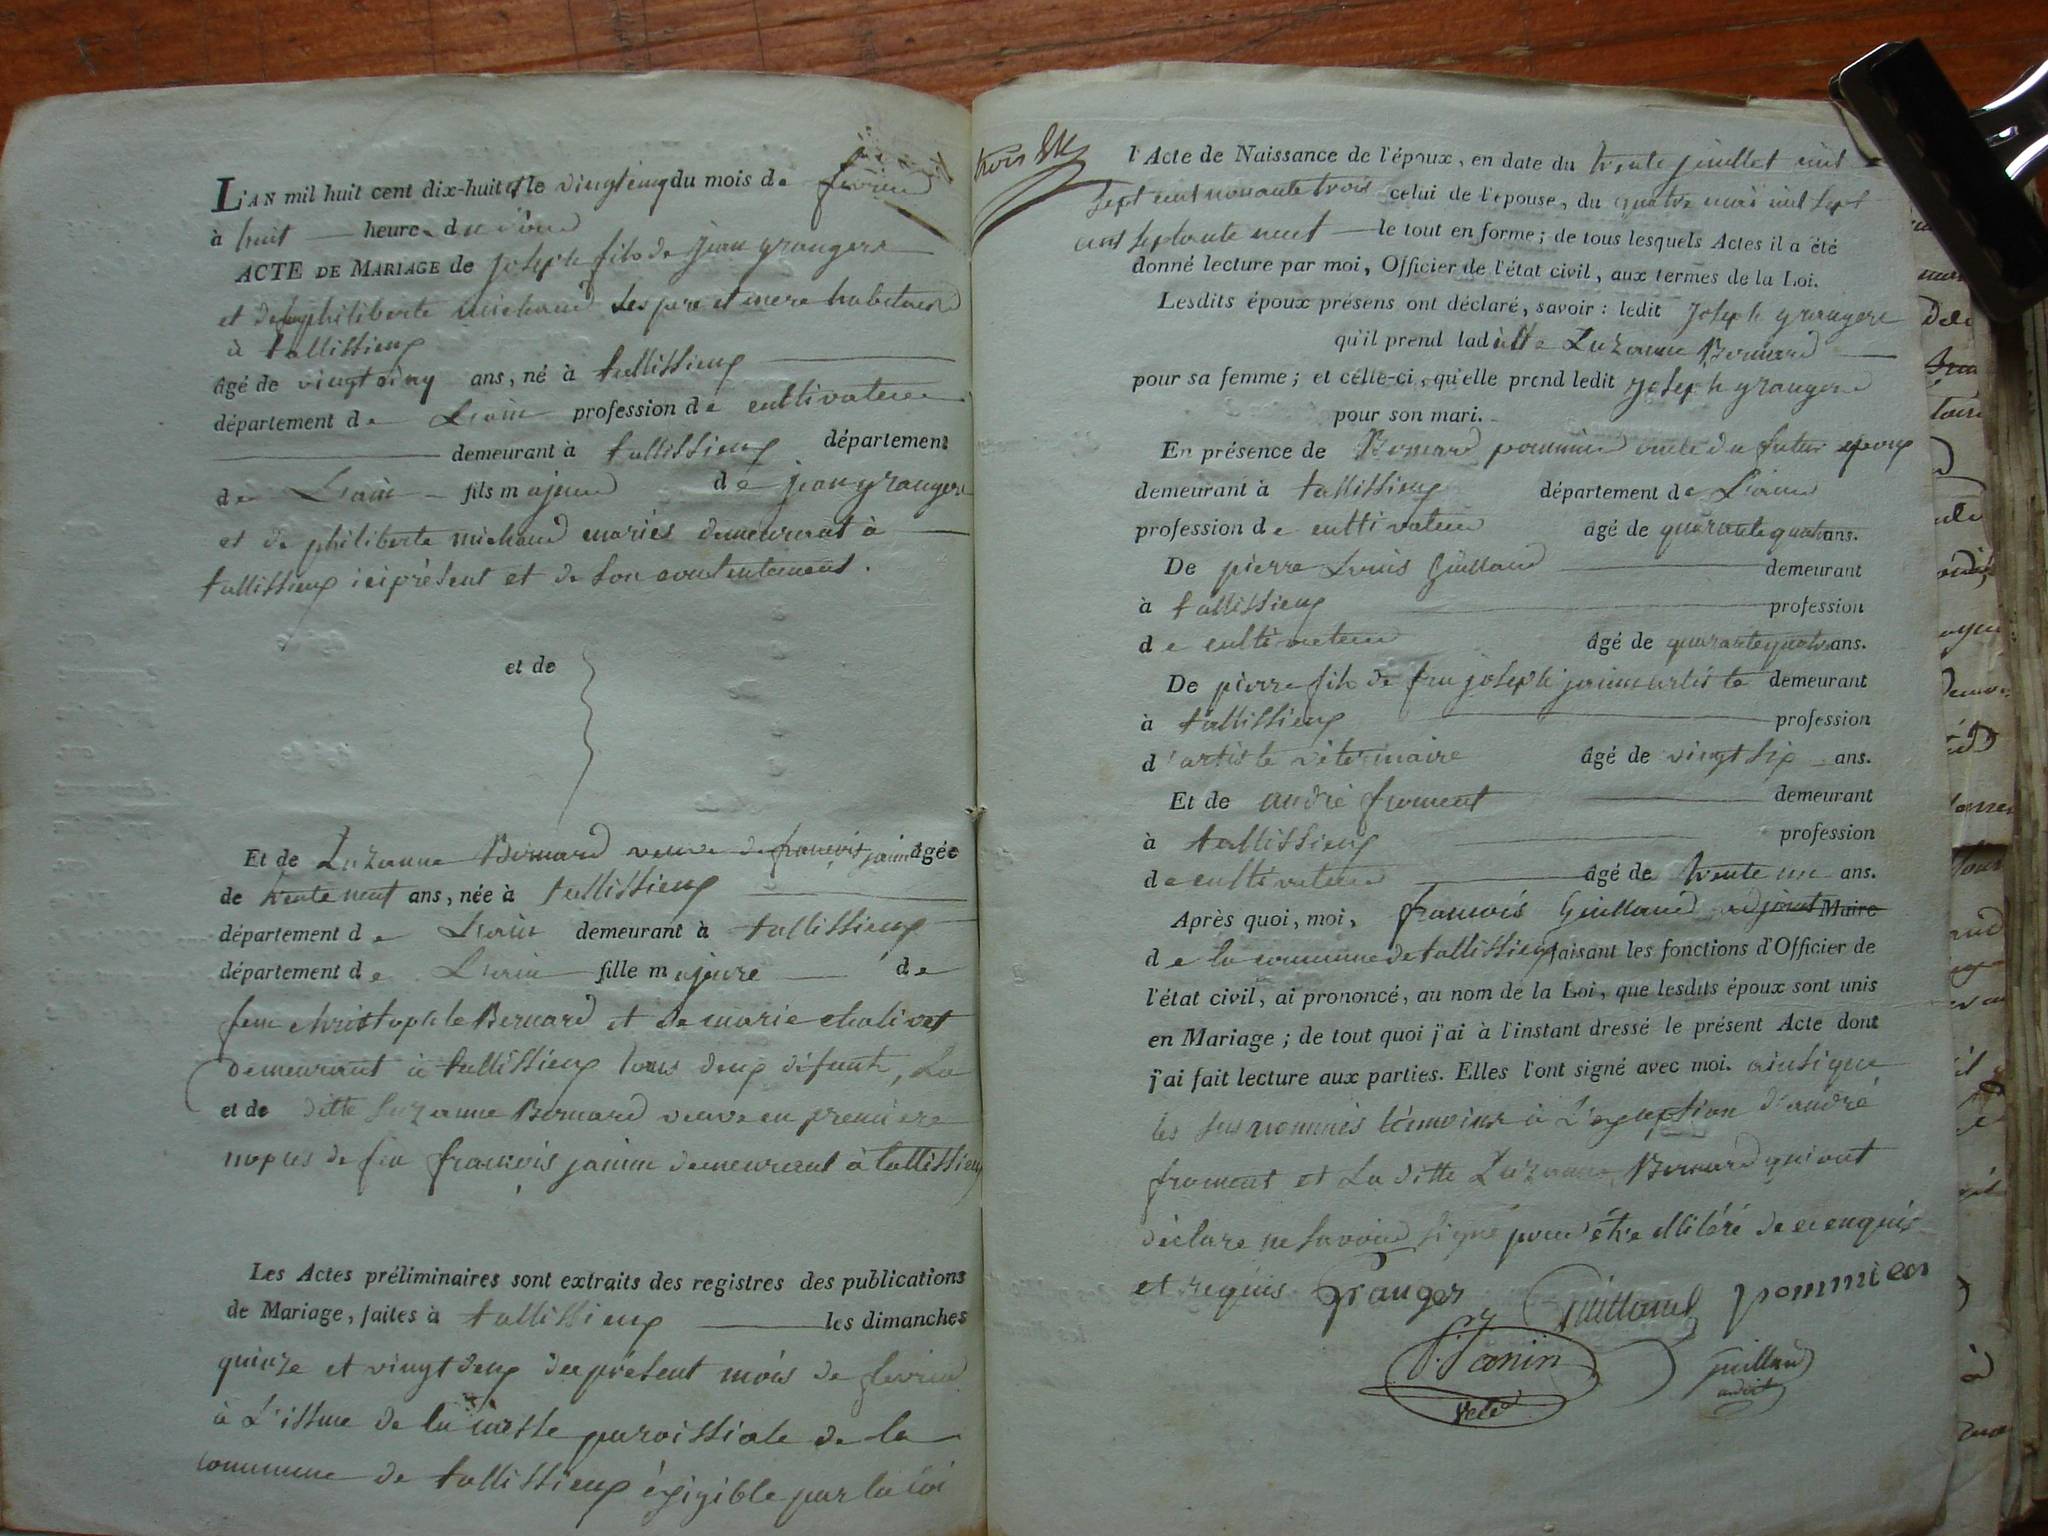 L'AN mil huit cent dix-huit le vingt cinq du mois de fevrier
à huit heure du soir
ACTE DE MARIAGE de joseph fils de jean grangere
et de philiberte michaud ses pere et mere habitans
à tallissieux
âgé de vingt cinq ans, né à tallissieux
département de L'ain profession de cultivateur
demeurant à tallissieux département
de L'ain fils majeur de jean grangere
et de philiberte michaud mariés demeurant à
tallissieux ici présent et de son consentement.
et de
Et de Suzanne Bernard veuve de françois janin âgée
de trente neuf ans, née à tallissieux
département de L'ain demeurant à tallissieux
département de L'ain fille majeure de
feu christophle Bernard et de marie chalivet
demeurant à tallissieux tous deux défunts, La
et de ditte Suzanne Bernard veuve en premiere
nopces de feu françois janin demeurant à tallissieux
Les Actes préliminaires sont extraits des registres des publications
de Mariage, faites à tallissieux les dimanches
quinze et vingt deux du présent mois de fevrier
à L'issue de la messe paroissiale de la
commune de tallissieux éxigible par la loi
trois
l'Acte de Naissance de l'époux, en date du trente juillet mil
sept cent nonante trois celui de l'épouse, du quatre mai mil sept
cent septante neuf le tout en forme; de tous lesquels Actes il a été
donné lecture par moi, Officier de l'état civil, aux termes de la Loi.
Lesdits époux présens ont déclaré, savoir: ledit Joseph grangere
qu'il prend laditte Suzanne Bernard
pour sa femme; et celle-ci, qu'elle prend ledit joseph grangere
pour son mari.
En présence de Bernard pommier oncle du futur epoux
demeurant à tallissieux département de L'ain
profession de cultivateur âgé de quarante quatre ans.
De pierre Louis Guilland demeurant
à tallissieux profession
de cultivateur âgé de quarante quatre ans.
De pierre fils de feu joseph janin artiste demeurant
à tallissieux profession
d'artiste véterinaire âgé de vingt six ans.
Et de andré froment demeurant
à tallissieux profession
de cultivateur âgé de trente un ans.
Après quoi, moi, françois Guilland adjoint Maire
de la commune de tallissieux faisant les fonctions d'Officier de
l'état civil, ai prononcé, au nom de la Loi, que lesdits époux sont unis
en Mariage; de tout quoi j'ai à l'instant dressé le présent Acte dont
j'ai fait lecture aux parties. Elles l'ont signé avec moi. ainsi que
les susnommés témoins à L'exception d'andré
froment et La ditte Suzanne Bernard qui ont
déclare ne savoir signé pour être illitéré de ce enquis
et requis. Granger Guilland pommier
P. Janin Guilland